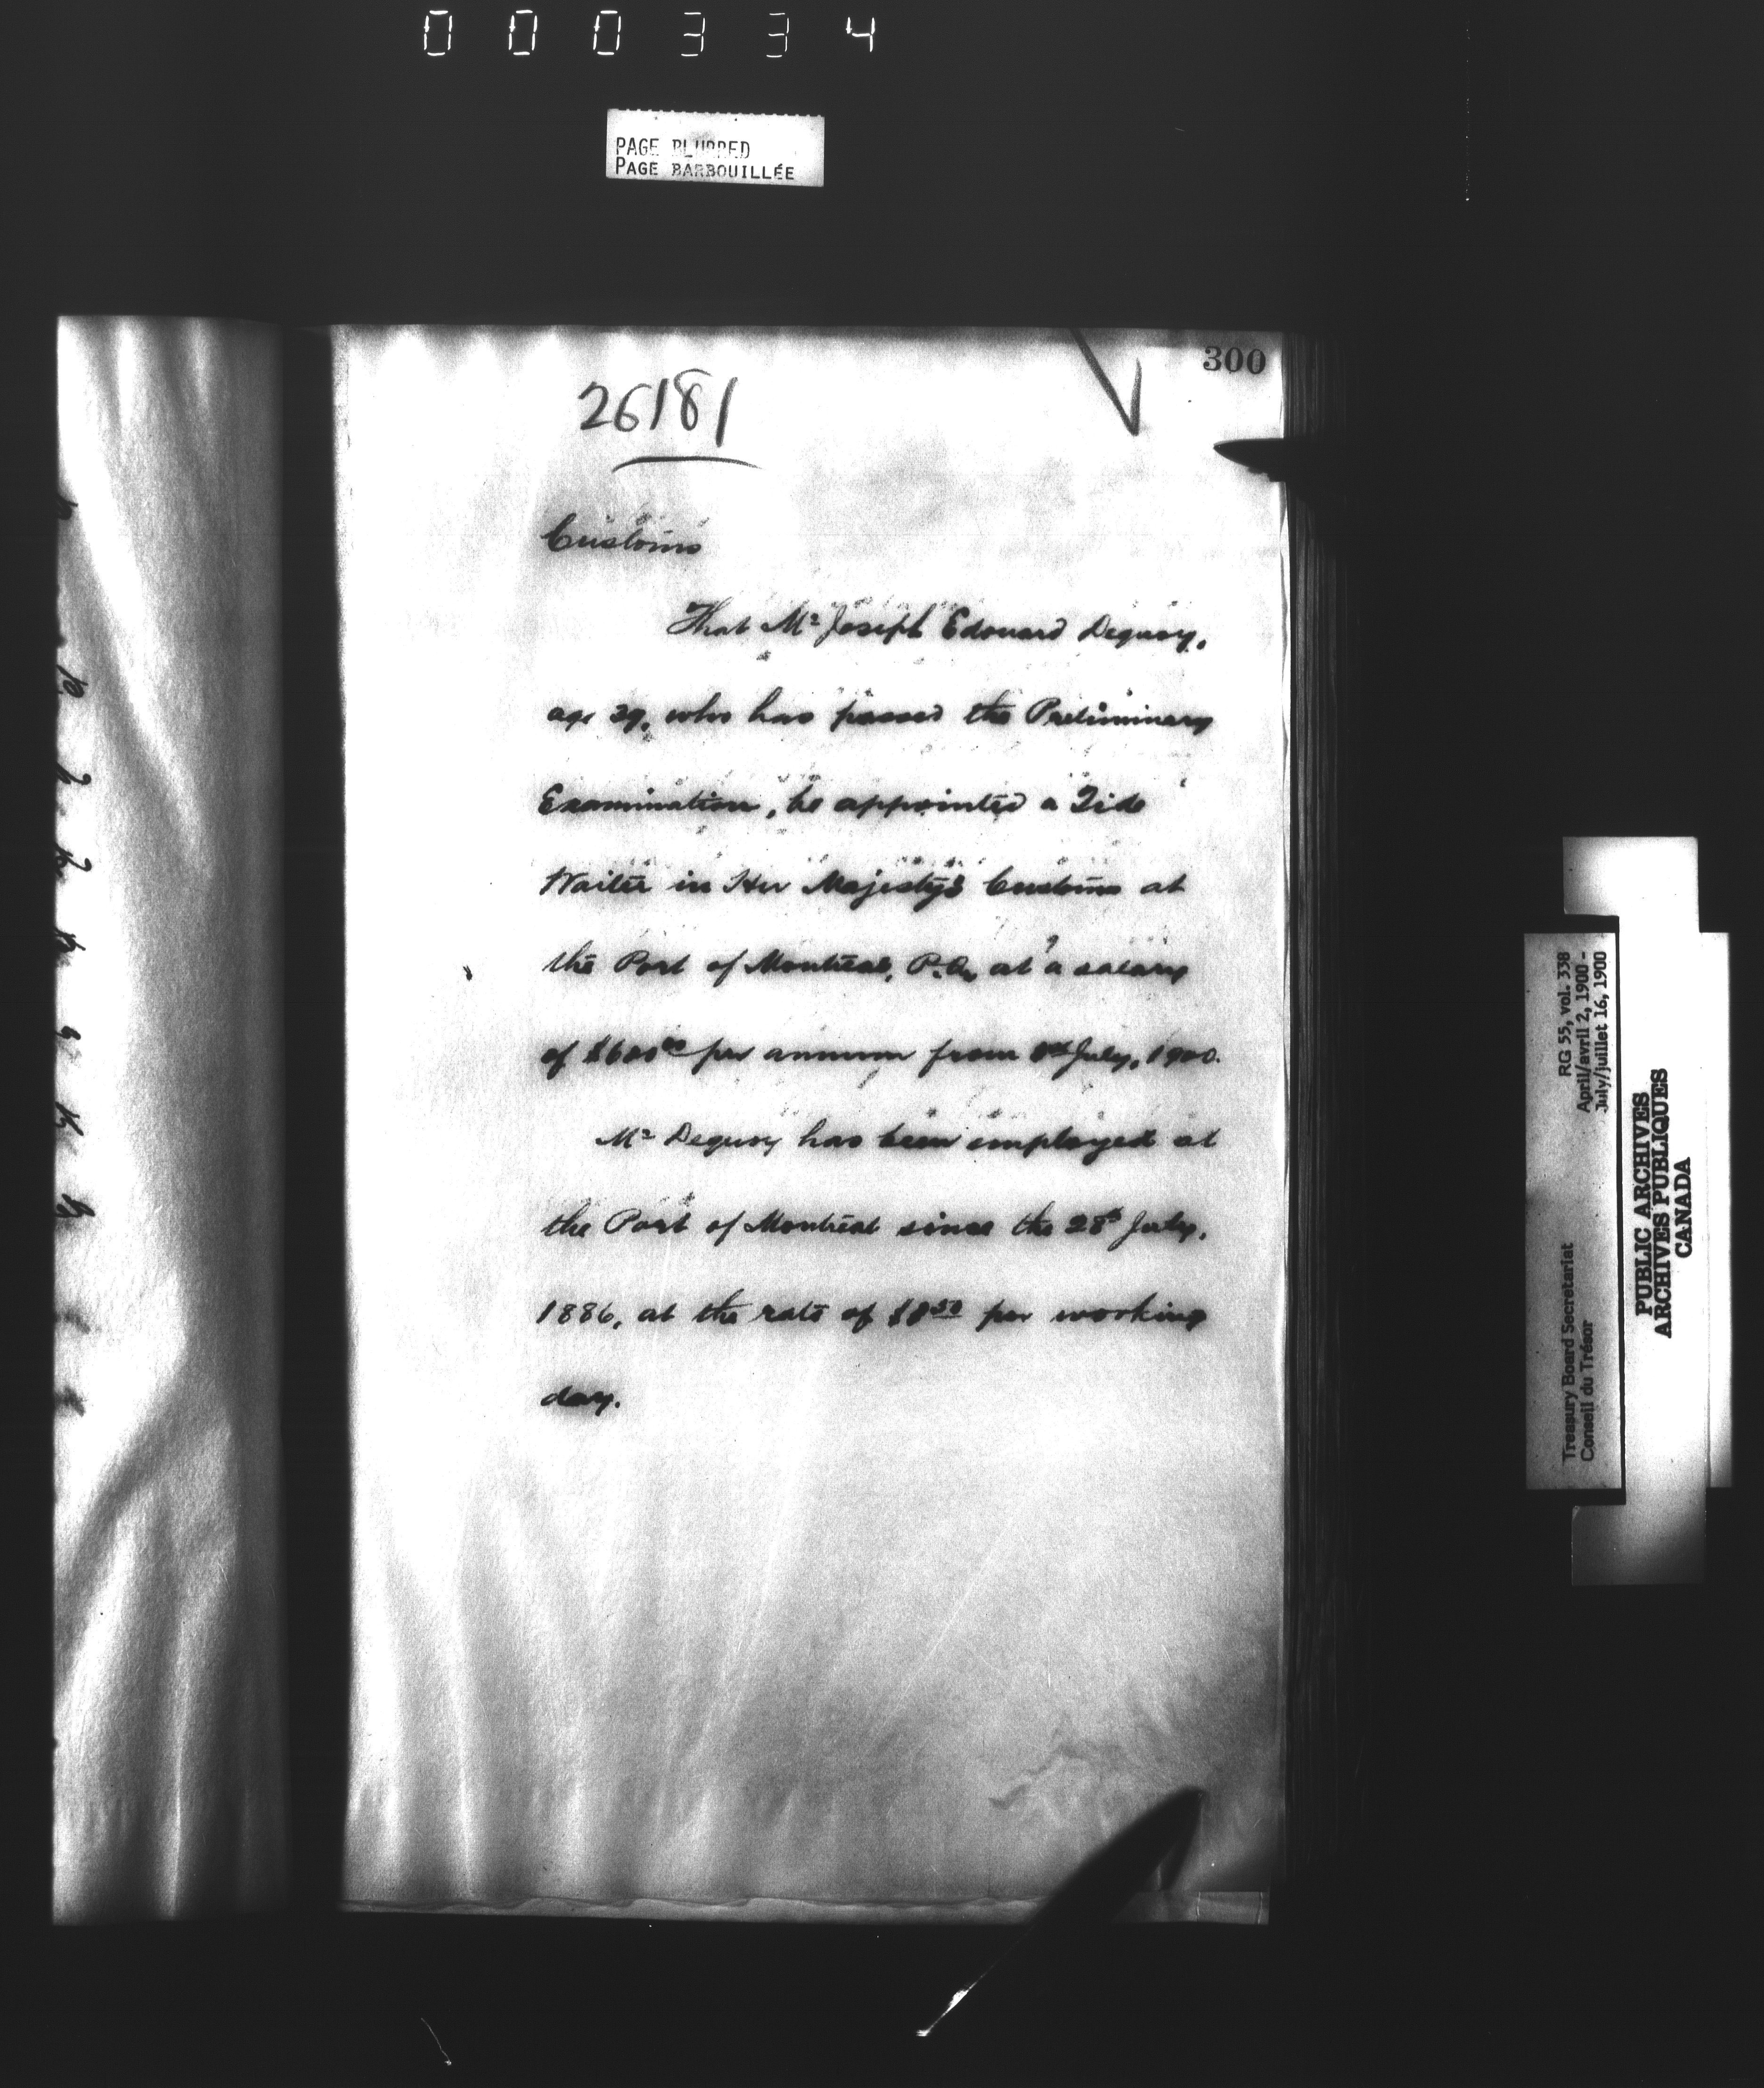 000334
PAGE BLURRED
PAGE BARBOUILLÉE
300
26181
Customs
That Mr Joseph Edouard Dequoy,
age 39, who has passed the Preliminary
Examination, be appointed a Tide
Waiter in Her Majesty's Customs at
the Port of Montreal, P.Q., at a salary
of $600.00 per annum from 1st July, 1900.
Mr Dequoy has been employed at
the Port of Montreal since the 28th July,
1886, at the rate of $1.50 per working
day.
RG 55, vol. 338
April/avril 2, 1900 -
July/juillet 16, 1900
Treasury Board Secretariat
Conseil du Trésor
PUBLIC ARCHIVES
ARCHIVES PUBLIQUES
CANADA